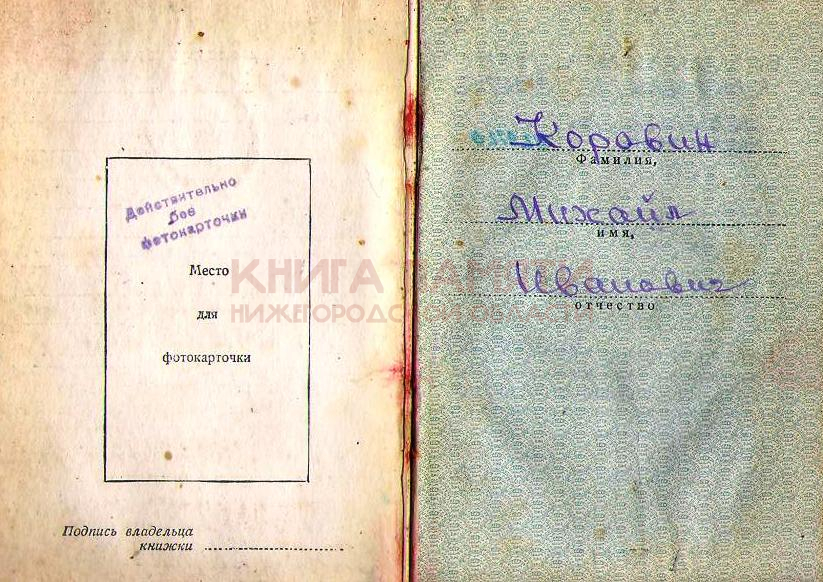 Действительно
без
фотокарточки
Место
для
фотокарточки
Подпись владельца
книжки
Коровин
Фамилия,
Михаил
имя,
Иванович
отчество
КНИГА ПАМЯТИ
НИЖЕГОРОДСКОЙ ОБЛАСТИ